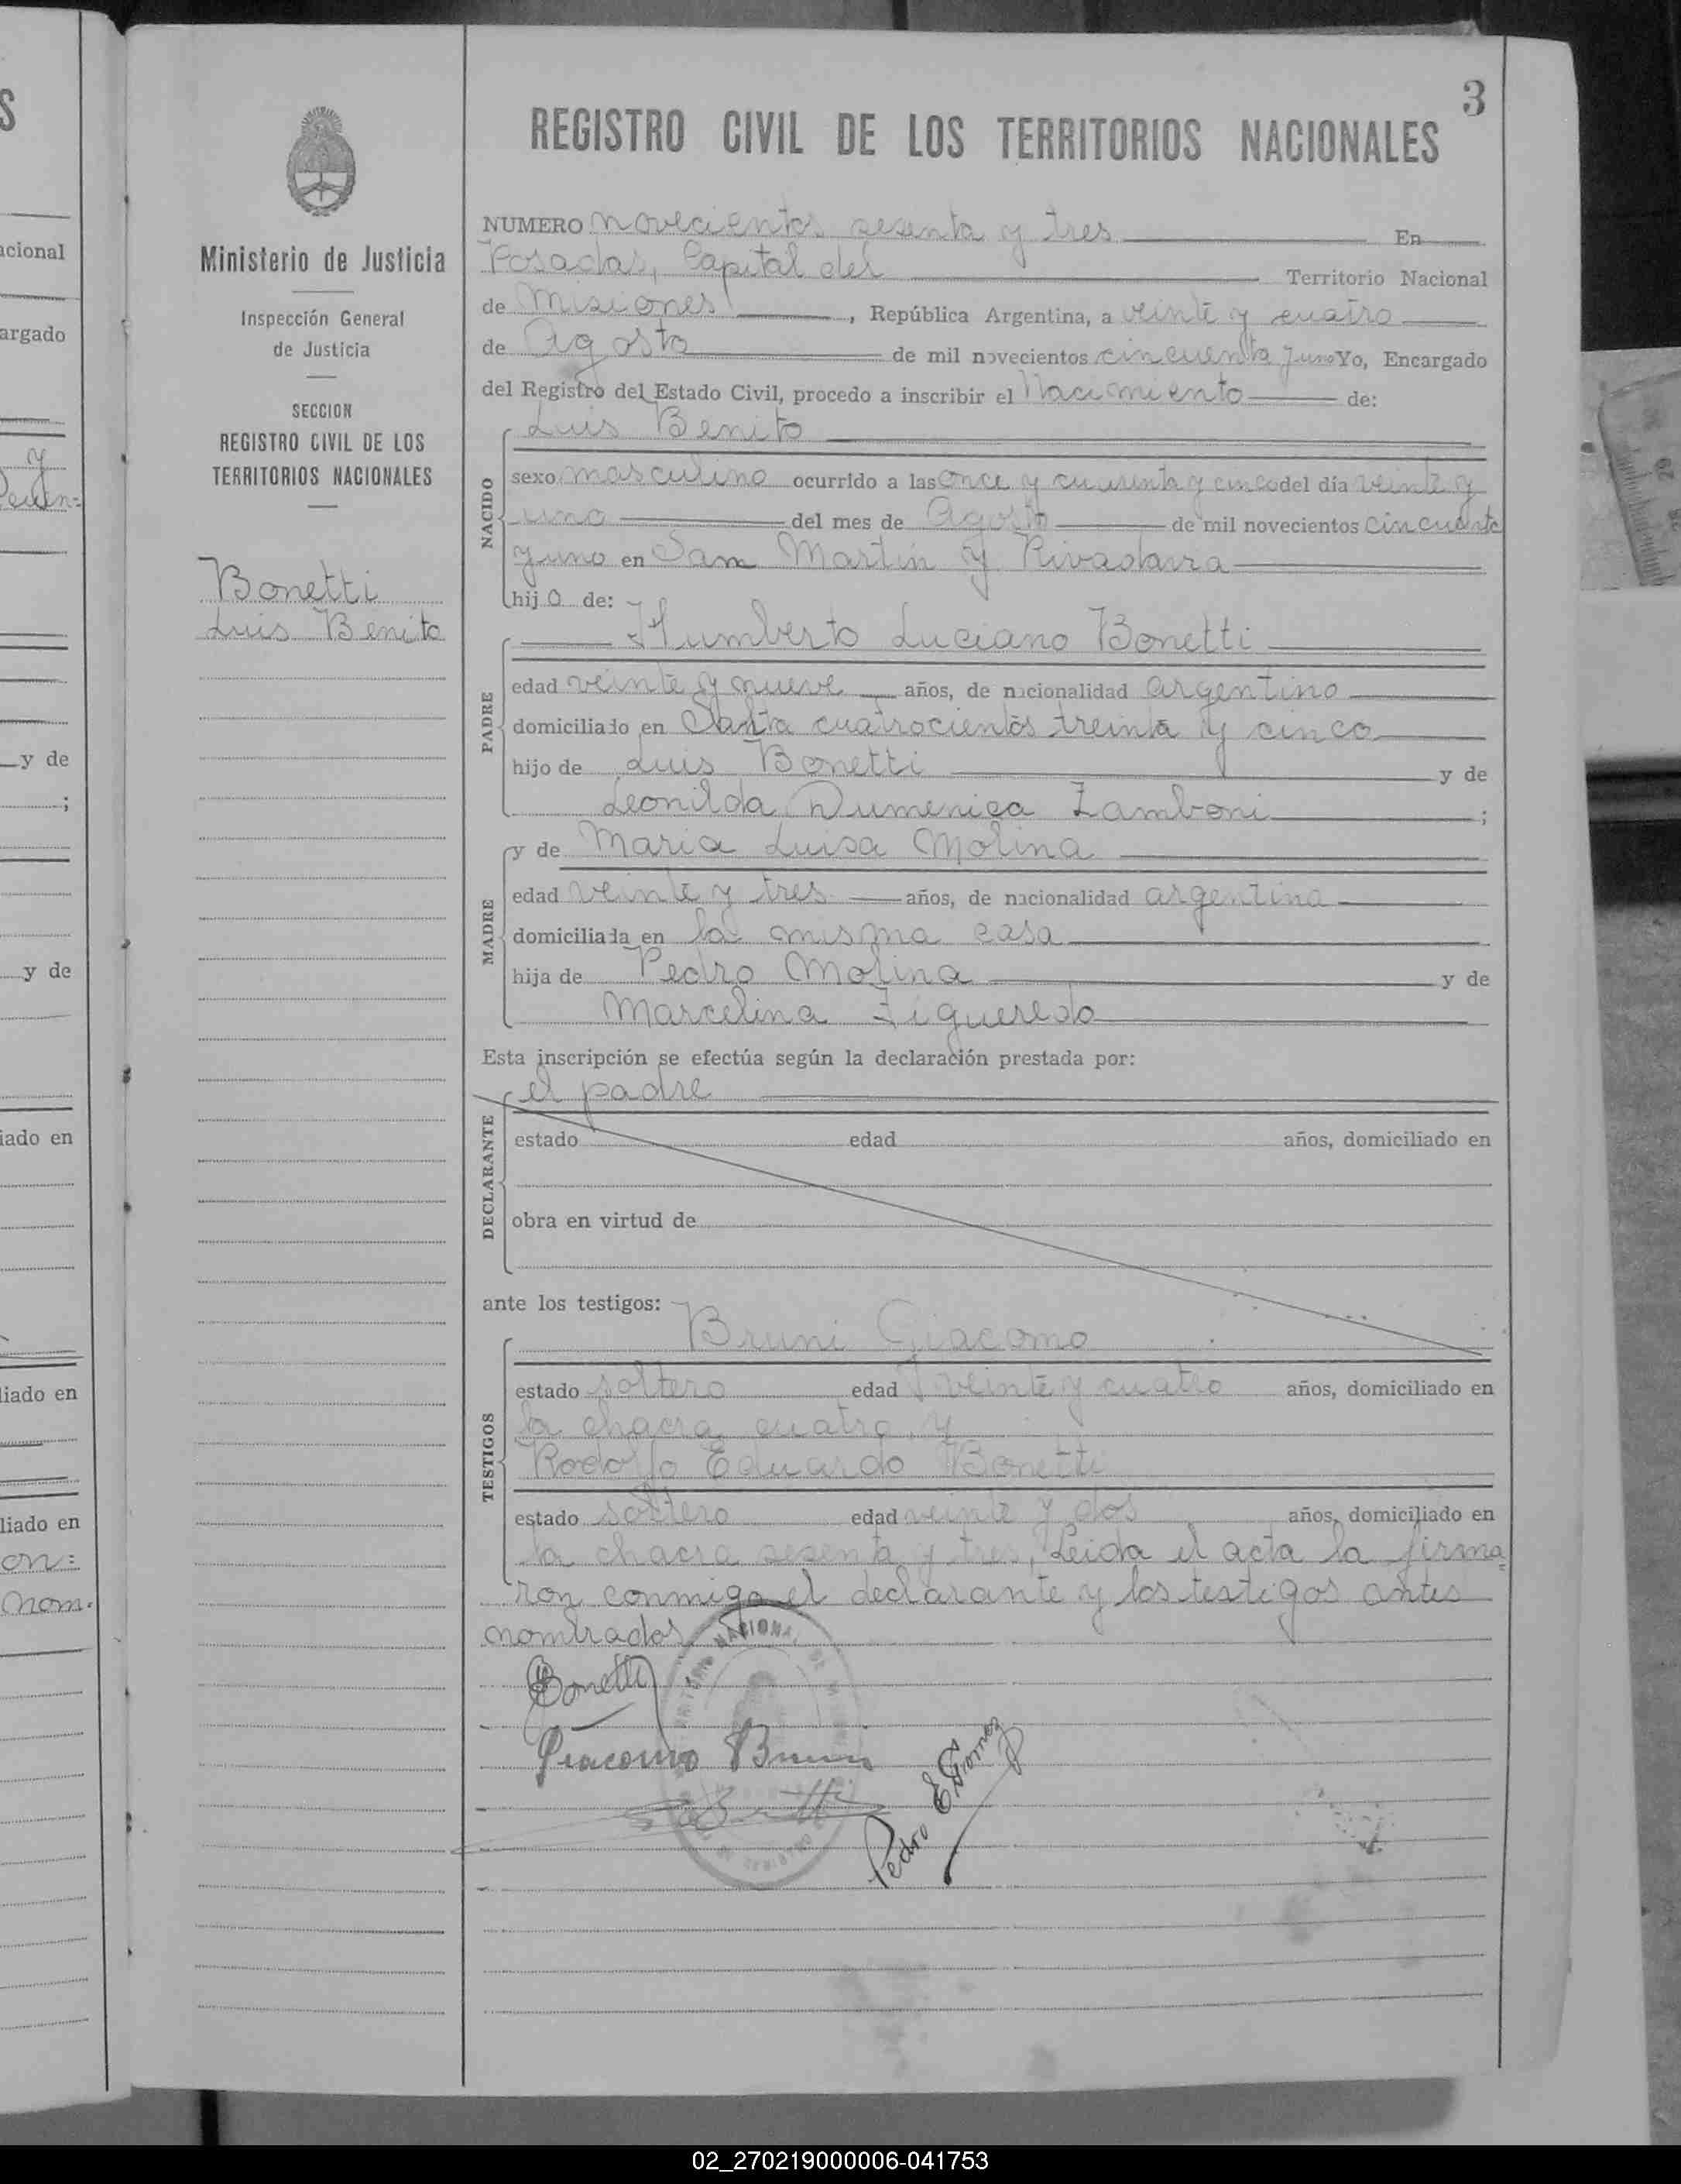 3
REGISTRO CIVIL DE LOS TERRITORIOS NACIONALES
Ministerio de Justicia
Inspección General
de Justicia
SECCION
REGISTRO CIVIL DE LOS
TERRITORIOS NACIONALES
Bonetti
Luis Benito
NUMERO novecientos sesenta y tres En
Posadas, Capital del Territorio Nacional
de Misiones, República Argentina, a veinte y cuatro
de Agosto de mil novecientos cincuenta y uno Yo, Encargado
del Registro del Estado Civil, procedo a inscribir el Nacimiento de:
NACIDO
Luis Benito
sexo masculino ocurrido a las once y cuarenta y cinco del día veinte y
uno del mes de Agosto de mil novecientos cincuenta
y uno en San Martín y Rivadavia
hijo de:
PADRE
Humberto Luciano Bonetti
edad veinte y nueve años, de nacionalidad argentino
domiciliado en Santa cuatrocientos treinta y cinco
hijo de Luis Bonetti y de
Leonilda Dumenica Zamboni ;
MADRE
y de Maria Luisa Molina
edad veinte y tres años, de nacionalidad argentina
domiciliada en la misma casa
hija de Pedro Molina y de
Marcelina Figueredo
Esta inscripción se efectúa según la declaración prestada por:
DECLARANTE
el padre
estado edad años, domiciliado en
obra en virtud de
ante los testigos:
TESTIGOS
Bruni Giacomo
estado soltero edad veinte y cuatro años, domiciliado en
la chacra cuatro, y
Rodolfo Eduardo Bonetti
estado soltero edad veinte y dos años, domiciliado en
la chacra sesenta y tres, Leida el acta la firma=
ron conmigo el declarante y los testigos antes
nombrados
Bonetti
Giacomo Bruni
Pedro E Gomez
acional
argado
y
y de
;
y de
iado en
liado en
liado en
on:
nom.
02_270219000006-041753